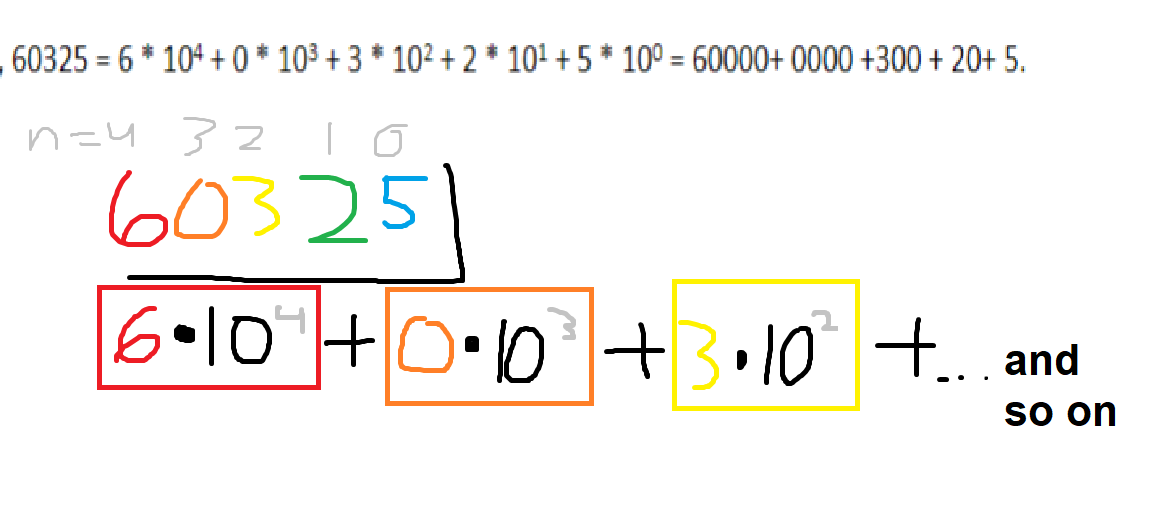 , 60325 = 6 * 10⁴ + 0 * 10³ + 3 * 10² + 2 * 10¹ + 5 * 10⁰ = 60000+ 0000 +300 + 20+ 5.
n=4 3 2 1 0
60325
6·10⁴ + 0·10³ + 3·10² + ... and
so on